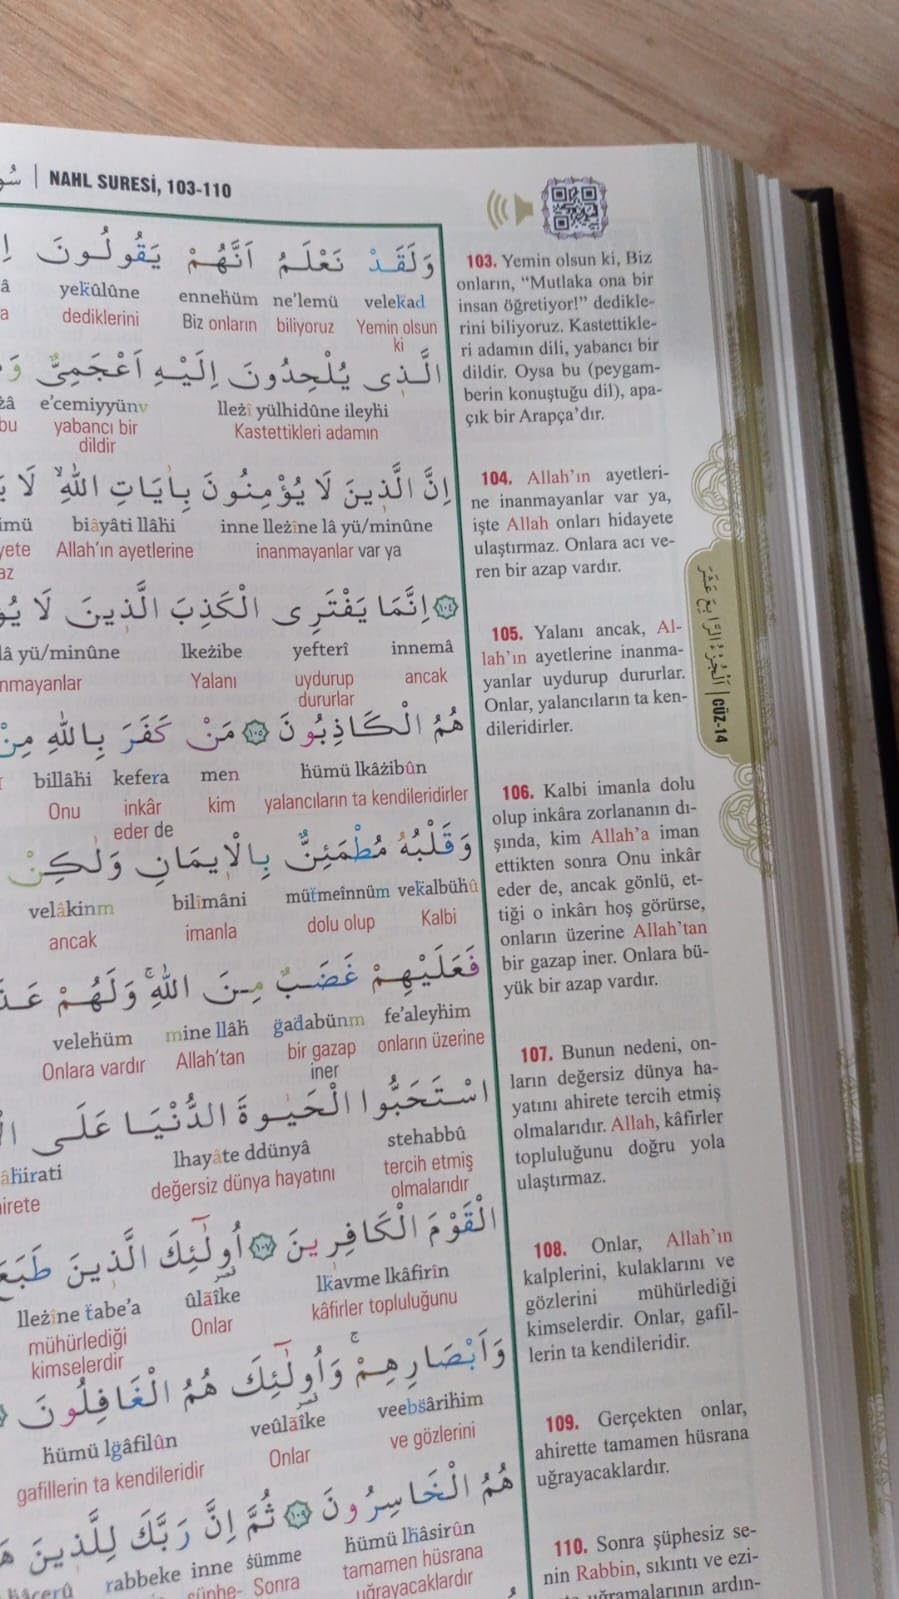 NAHL SURESİ, 103-110
وَلَقَدْ نَعْلَمُ اَنَّهُمْ يَقُولُونَ
velekad ne'lemü ennehüm yekûlûne
Yemin olsun ki biliyoruz Biz onların dediklerini
الَّذِى يُلْحِدُونَ اِلَيْهِ اَعْجَمِىٌّ
lležî yülhidûne ileyhi e'cemiyyünv
Kastettikleri adamın yabancı bir dildir bu
اِنَّ الَّذِينَ لَا يُؤْمِنُونَ بِاٰيَاتِ اللّٰهِ لَا
inne lležîne lâ yü/minûne biâyâti llâhi
inanmayanlar var ya Allah'ın ayetlerine
١٠٤ اِنَّمَا يَفْتَرِى الْكَذِبَ الَّذِينَ لَا
innemâ yefterî lkežibe lâ yü/minûne
ancak uydurup dururlar Yalanı
هُمُ الْكَاذِبُونَ ١٠٥ مَنْ كَفَرَ بِاللّٰهِ مِنْ
hümü lkâžibûn men kefera billâhi
yalancıların ta kendileridirler kim inkâr eder de Onu
وَقَلْبُهُ مُطْمَئِنٌّ بِالْاِيمَانِ وَلٰكِنْ
vekalbühû mütmeînnüm bilîmâni velâkinm
Kalbi dolu olup imanla ancak
فَعَلَيْهِمْ غَضَبٌ مِنَ اللّٰهِ وَلَهُمْ
fe'aleyhim ğadabünm mine llâh velehüm
onların üzerine bir gazap iner Allah'tan Onlara vardır
اسْتَحَبُّوا الْحَيٰوةَ الدُّنْيَا عَلَى
stehabbû lhayâte ddünyâ âhirati
tercih etmiş olmalarıdır değersiz dünya hayatını
الْقَوْمَ الْكَافِرِينَ ١٠٧ اُولٰٓئِكَ الَّذِينَ طَبَعَ
lkavme lkâfirîn ûlâîke lležîne tabe'a
kâfirler topluluğunu Onlar mühürlediği kimselerdir
وَاَبْصَارِهِمْ وَاُولٰٓئِكَ هُمُ الْغَافِلُونَ
veebsârihim veûlâîke hümü lğâfilûn
ve gözlerini Onlar gafillerin ta kendileridir
هُمُ الْخَاسِرُونَ ١٠٩ ثُمَّ اِنَّ رَبَّكَ لِلَّذِينَ
hümü lhâsirûn sümme inne rabbeke
tamamen hüsrana uğrayacaklardır Sonra
103. Yemin olsun ki, Biz
onların, “Mutlaka ona bir
insan öğretiyor!” dedikle-
rini biliyoruz. Kastettikle-
ri adamın dili, yabancı bir
dildir. Oysa bu (peygam-
berin konuştuğu dil), apa-
çık bir Arapça'dır.
104. Allah'ın ayetleri-
ne inanmayanlar var ya,
işte Allah onları hidayete
ulaştırmaz. Onlara acı ve-
ren bir azap vardır.
105. Yalanı ancak, Al-
lah'ın ayetlerine inanma-
yanlar uydurup dururlar.
Onlar, yalancıların ta ken-
dileridirler.
106. Kalbi imanla dolu
olup inkâra zorlananın dı-
şında, kim Allah'a iman
ettikten sonra Onu inkâr
eder de, ancak gönlü, et-
tiği o inkârı hoş görürse,
onların üzerine Allah'tan
bir gazap iner. Onlara bü-
yük bir azap vardır.
107. Bunun nedeni, on-
ların değersiz dünya ha-
yatını ahirete tercih etmiş
olmalarıdır. Allah, kâfirler
topluluğunu doğru yola
ulaştırmaz.
108. Onlar, Allah'ın
kalplerini, kulaklarını ve
gözlerini mühürlediği
kimselerdir. Onlar, gafil-
lerin ta kendileridir.
109. Gerçekten onlar,
ahirette tamamen hüsrana
uğrayacaklardır.
110. Sonra şüphesiz se-
nin Rabbin, sıkıntı ve ezi-
uğramalarının ardın-
اَلْجُزْءُ الرَّابِعَ عَشَرَ | CÜZ-14